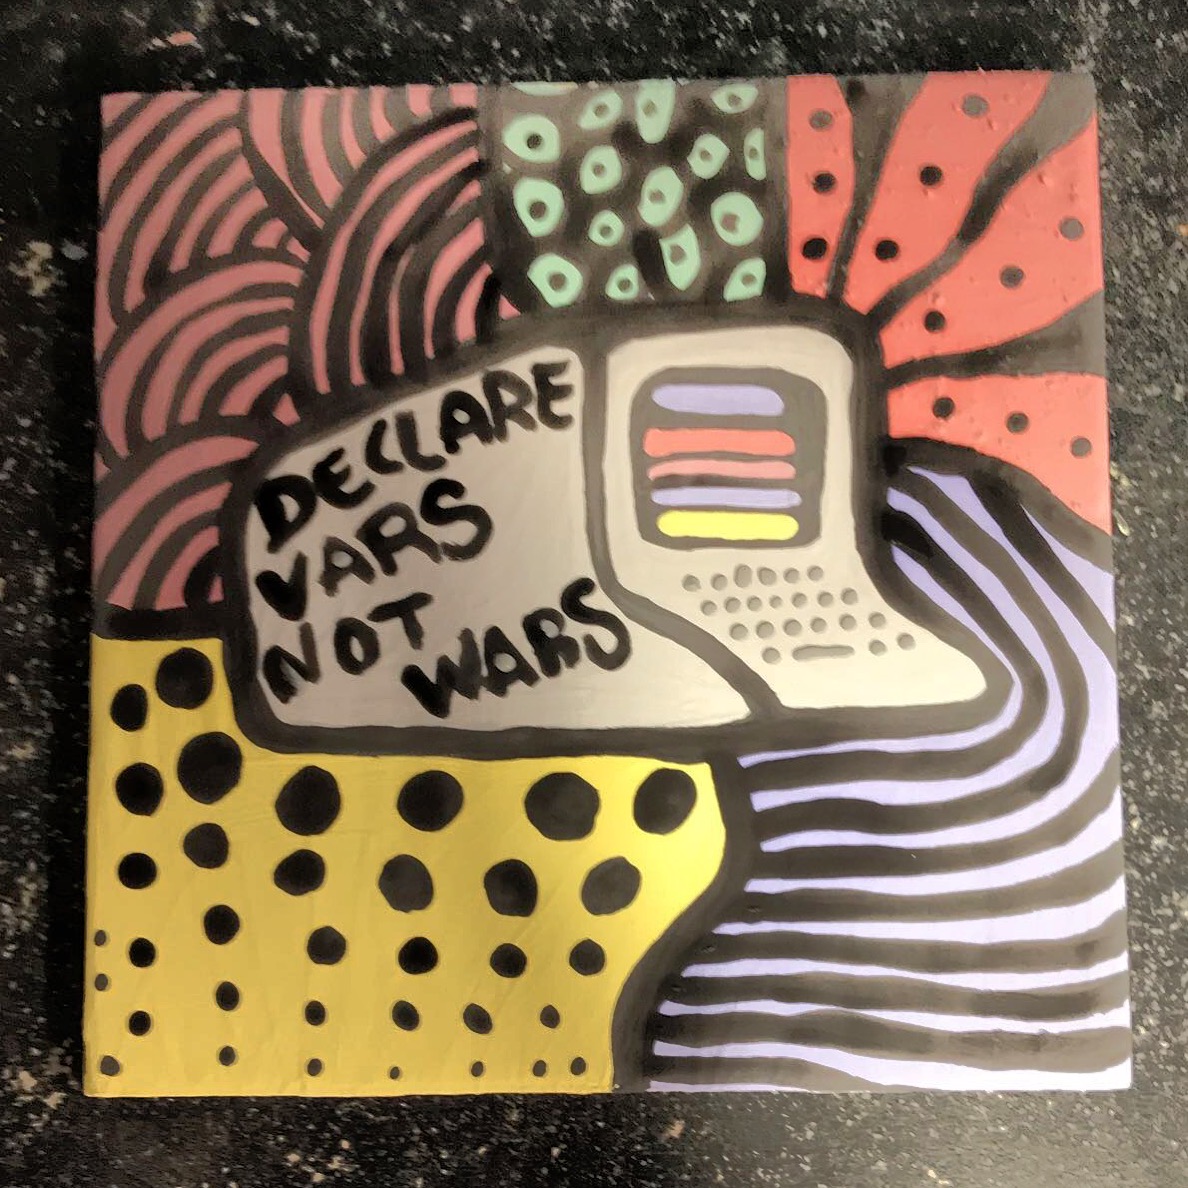 DECLARE
VARS
NOT
WARS